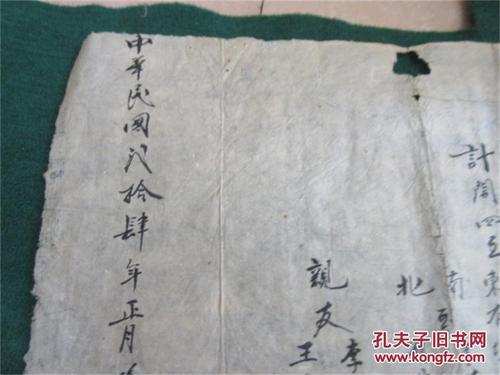 計開四至東
南至
北
親友李
王
中華民國弍拾肆年正月
孔夫子旧书网
www.kongfz.com